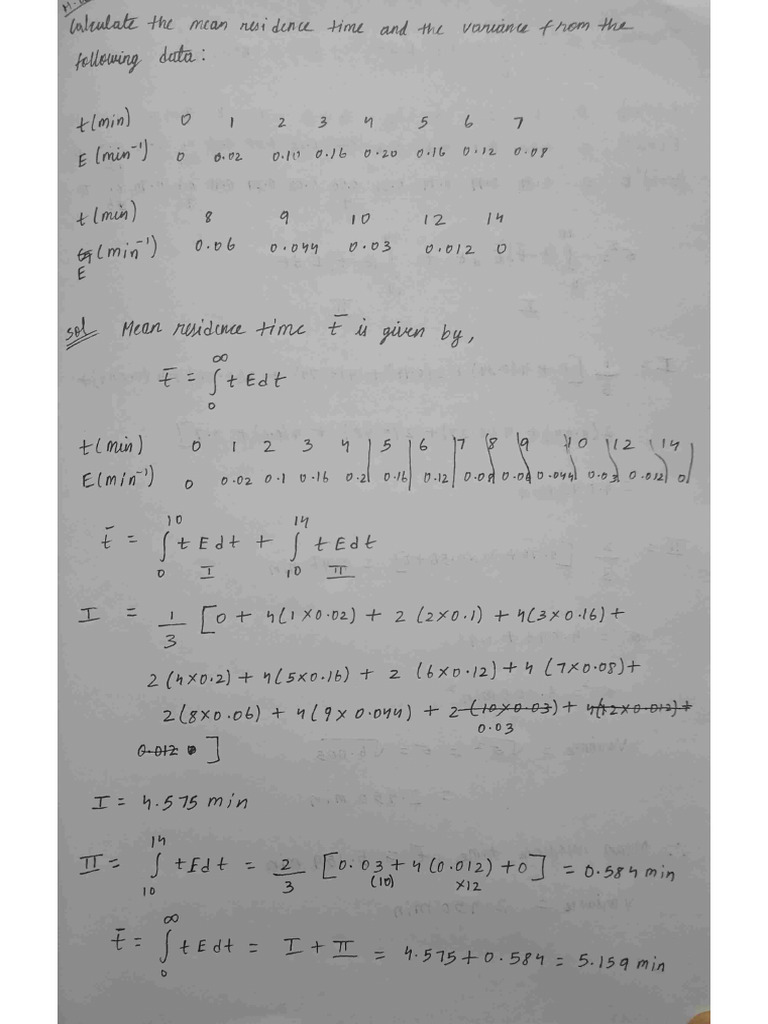 Calculate the mean residence time and the variance from the
following data:
t(min) 0 1 2 3 4 5 6 7
E (min⁻¹) 0 0.02 0.10 0.16 0.20 0.16 0.12 0.08
t(min) 8 9 10 12 14
(min⁻¹) 0.06 0.044 0.03 0.012 0
E
Sol Mean residence time t̄ is given by,
t̄ = ∫₀^∞ t E dt
t(min) 0 1 2 3 4 5 6 7 8 9 10 12 14
E(min⁻¹) 0 0.02 0.1 0.16 0.2 0.16 0.12 0.08 0.06 0.044 0.03 0.012 0
t̄ = ∫₀^10 t E dt + ∫₁₀^14 t E dt
I II
I = 1/3 [0 + 4(1×0.02) + 2 (2×0.1) + 4(3×0.16) +
2(4×0.2) + 4(5×0.16) + 2 (6×0.12) + 4 (7×0.08) +
2(8×0.06) + 4(9×0.044) + 2 (10×0.03) + 4(12×0.012) +
0.03
0.012 ]
I = 4.575 min
II = ∫₁₀^14 t E dt = 2/3 [0.03 + 4 (0.012) + 0] = 0.584 min
(10) ×12
t̄ = ∫₀^∞ t E dt = I + II = 4.575 + 0.584 = 5.159 min